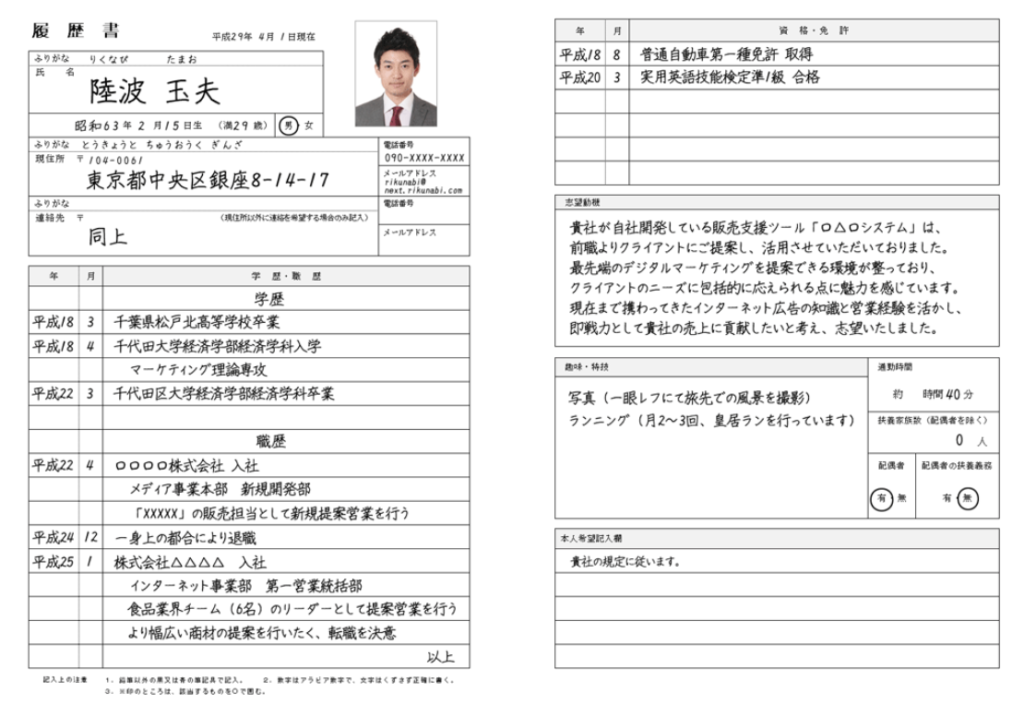 履歴書
平成29年 4月 1日現在
ふりがな りくなび たまお
氏名
陸波 玉夫
昭和63年 2月15日生 (満29歳) 男 女
ふりがな とうきょうと ちゅうおうく ぎんざ
現住所 〒104-0061
東京都中央区銀座8-14-17
電話番号
090-XXXX-XXXX
メールアドレス
rikunabi@
next.rikunabi.com
ふりがな
連絡先 〒 (現住所以外に連絡を希望する場合のみ記入)
同上
電話番号
メールアドレス
年 月 学歴・職歴
学歴
平成18 3 千葉県松戸北高等学校卒業
平成18 4 千代田大学経済学部経済学科入学
マーケティング理論専攻
平成22 3 千代田区大学経済学部経済学科卒業
職歴
平成22 4 ○○○○株式会社 入社
メディア事業本部 新規開発部
「XXXXX」の販売担当として新規提案営業を行う
平成24 12 一身上の都合により退職
平成25 1 株式会社△△△△ 入社
インターネット事業部 第一営業統括部
食品業界チーム(6名)のリーダーとして提案営業を行う
より幅広い商材の提案を行いたく、転職を決意
以上
記入上の注意 1. 鉛筆以外の黒又は青の筆記具で記入。 2. 数字はアラビア数字で、文字はくずさず正確に書く。
3. ※印のところは、該当するものを○で囲む。
年 月 資格・免許
平成18 8 普通自動車第一種免許 取得
平成20 3 実用英語技能検定準1級 合格
志望動機
貴社が自社開発している販売支援ツール「ロ△ロシステム」は、
前職よりクライアントにご提案し、活用させていただいておりました。
最先端のデジタルマーケティングを提案できる環境が整っており、
クライアントのニーズに包括的に応えられる点に魅力を感じています。
現在まで携わってきたインターネット広告の知識と営業経験を活かし、
即戦力として貴社の売上に貢献したいと考え、志望いたしました。
趣味・特技
写真(一眼レフにて旅先での風景を撮影)
ランニング(月2〜3回、皇居ランを行っています)
通勤時間
約 時間40分
扶養家族数(配偶者を除く)
0 人
配偶者
有・無
配偶者の扶養義務
有・無
本人希望記入欄
貴社の規定に従います。